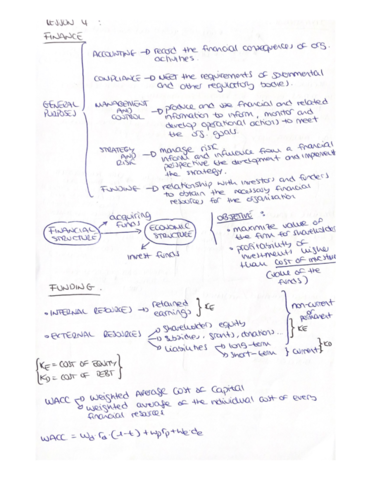 LESSON 4 :
FINANCE
ACCOUNTING → record the financial consequences of org.
activities
COMPLIANCE → meet the requirements of governmental
and other regulatory bodies.
GENERAL
PURPOSES
MANAGEMENT
AND
CONTROL
→ produce and use financial and related
information to inform, monitor and
develop operational actions to meet
the org. goals
STRATEGY
AND
RISK
→ manage risk
inform and influence from a financial
perspective the development and
the strategy.
FUNDING → relationship with investors and funders
to obtain the necessary financial
resources for the organisation
acquiring
funds
FINANCIAL
STRUCTURE
ECONOMIC
STRUCTURE
invest funds
OBJECTIVE :
• maximize value of
the firm for shareholders
• profitability of
investments higher
than cost of
(value of the
funds)
FUNDING.
• INTERNAL RESOURCES → retained
earnings } KE
• EXTERNAL RESOURCES
shareholders equity
subsidies, grants, donations..
liabilities
long-term
short-term } current
non-current
or
permanent
KE
KD
KE = COST OF EQUITY
KD = COST OF DEBT
WACC
Weighted Average Cost of Capital
weighted average of the individual cost of every
financial resource
WACC = wd rd (1-t) + wp rp + we